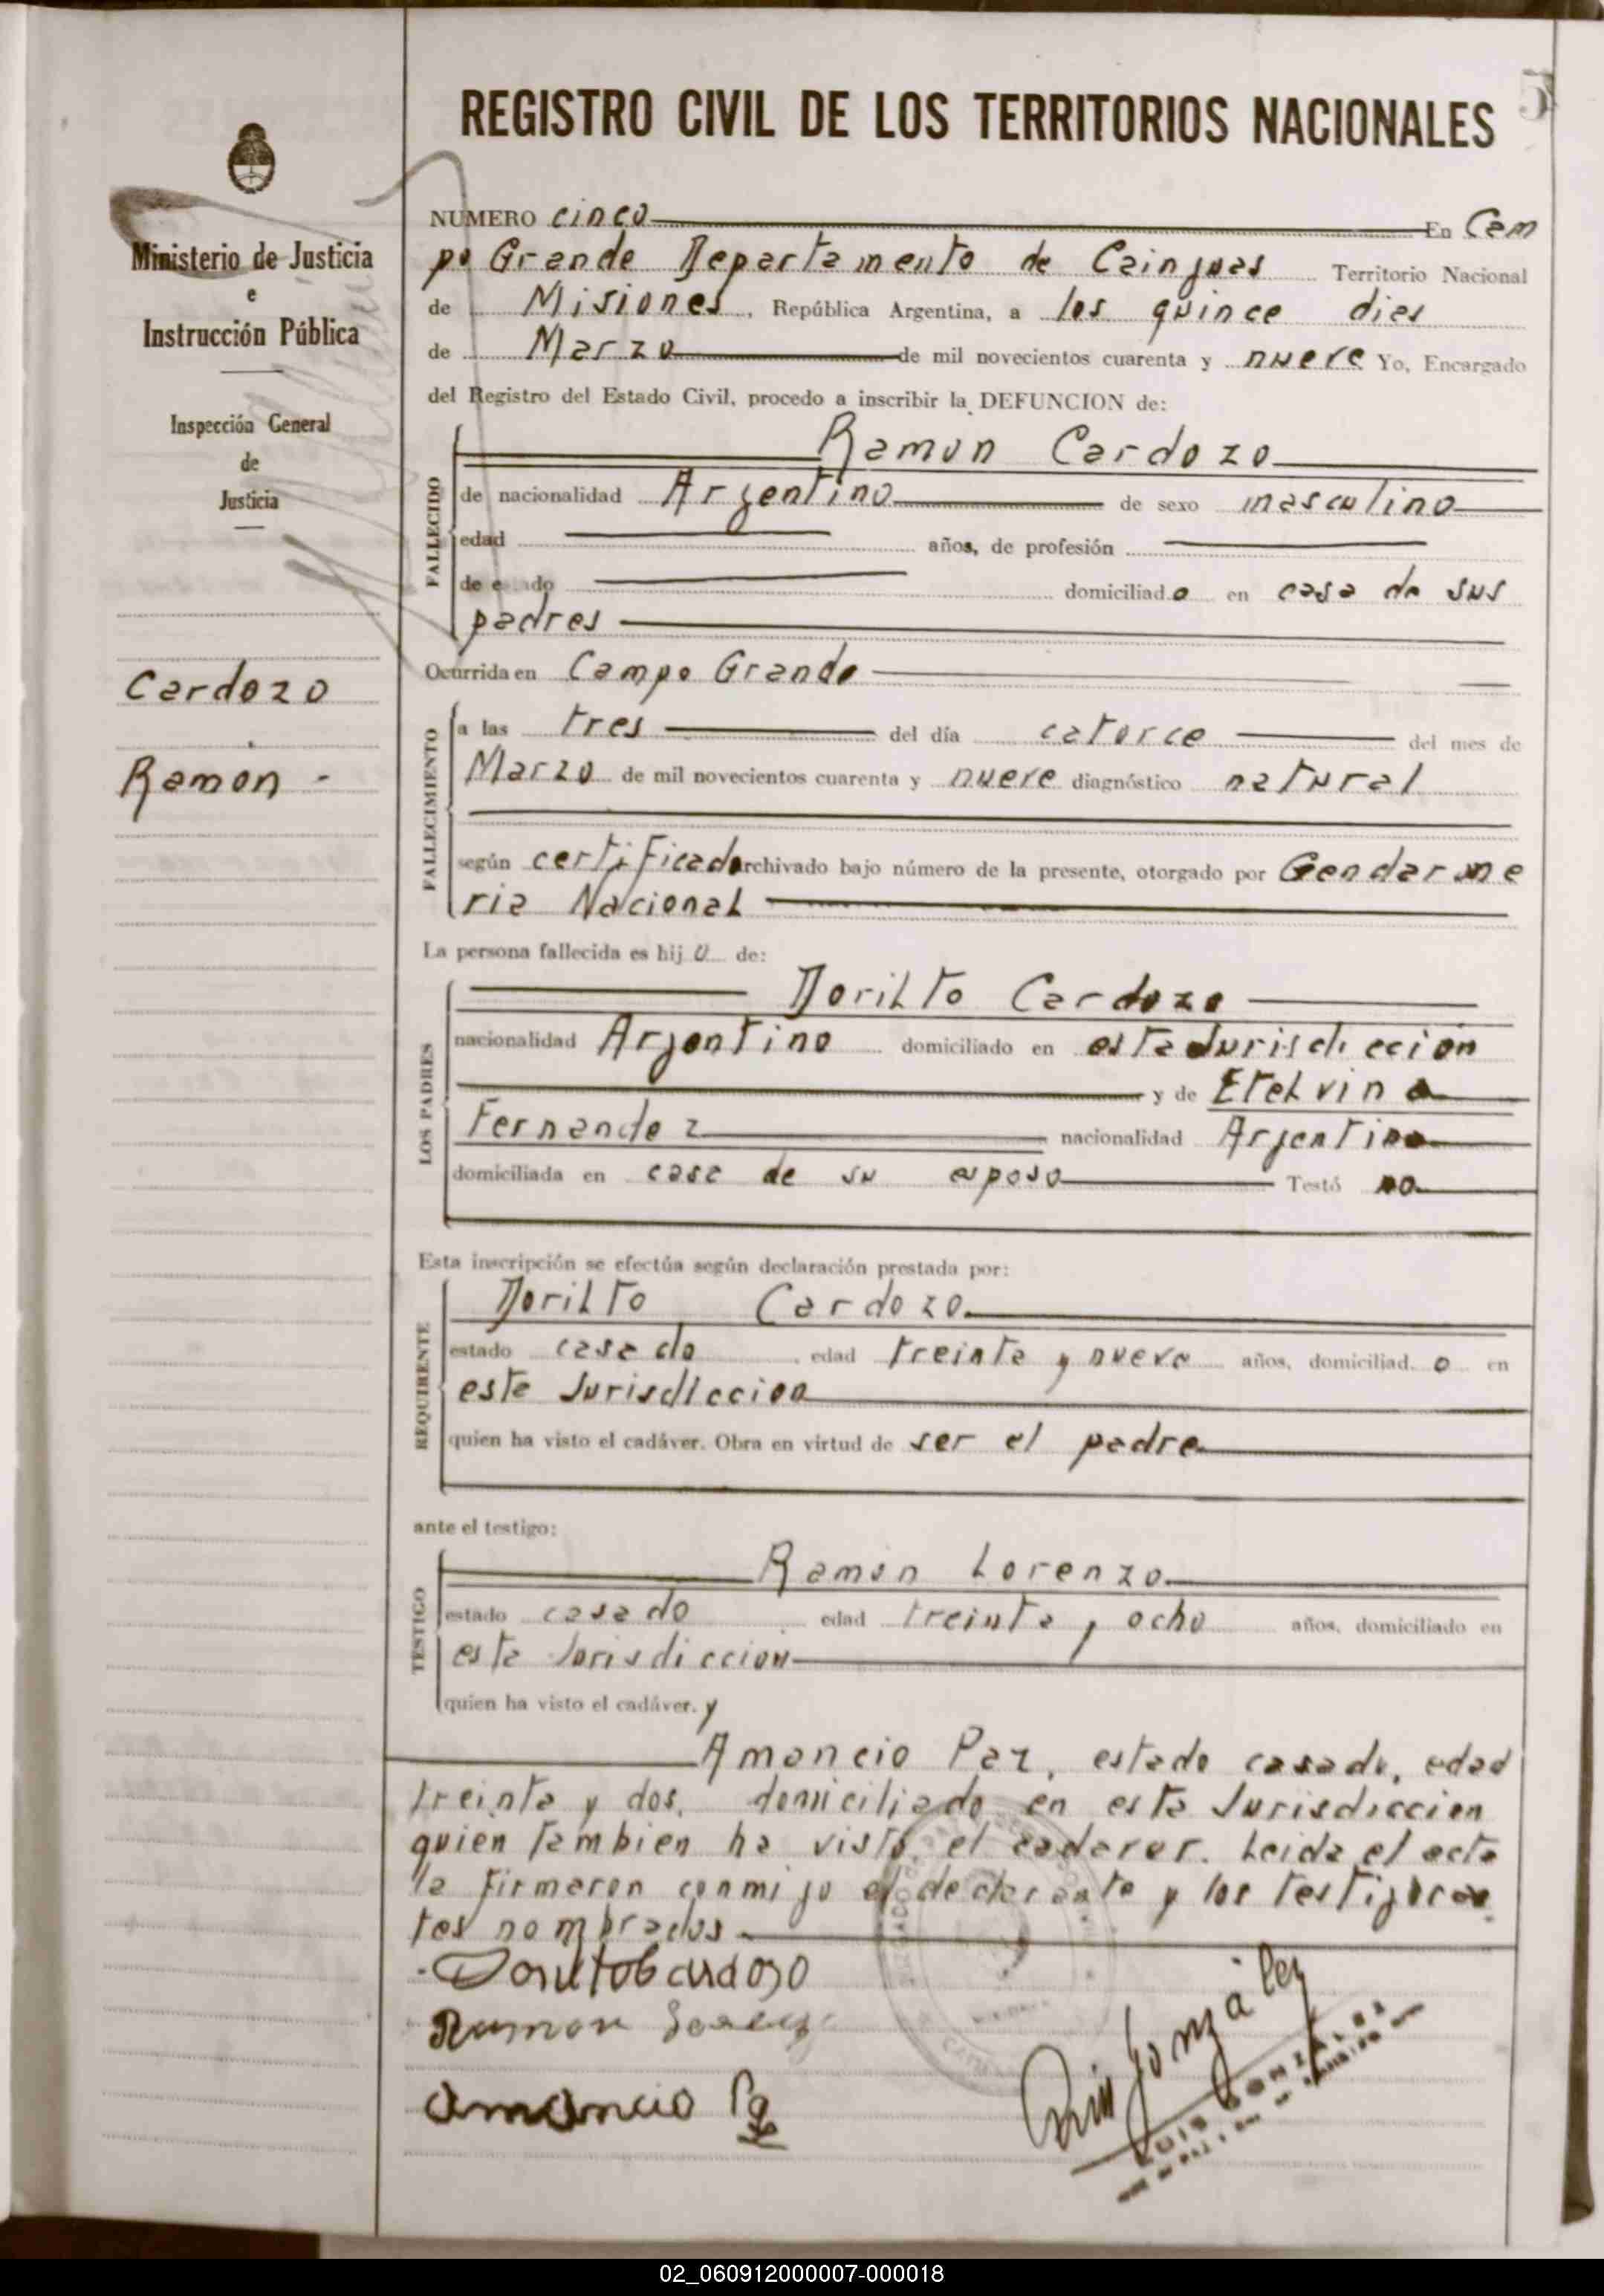 REGISTRO CIVIL DE LOS TERRITORIOS NACIONALES
5
Ministerio de Justicia
e
Instrucción Pública
Inspección General
de
Justicia
Cardozo
Ramon -
NUMERO cinco En Cam
po Grande Departamento de Cainguas Territorio Nacional
de Misiones, República Argentina, a los quince dias
de Marzo de mil novecientos cuarenta y nueve Yo, Encargado
del Registro del Estado Civil, procedo a inscribir la DEFUNCION de:
FALLECIDO
Ramon Cardozo
de nacionalidad Argentino de sexo masculino
edad años, de profesión
de estado domiciliado en casa de sus
padres
Ocurrida en Campo Grande
FALLECIMIENTO
a las tres del día catorce del mes de
Marzo de mil novecientos cuarenta y nueve diagnóstico natural
según certificado archivado bajo número de la presente, otorgado por Gendarme
ria Nacional
La persona fallecida es hijo de:
LOS PADRES
Dorilto Cardozo
nacionalidad Argentino domiciliado en esta Jurisdiccion
y de Etelvina
Fernandez nacionalidad Argentina
domiciliada en casa de su esposo Testó no
Esta inscripción se efectúa según declaración prestada por:
REQUIRENTE
Dorilto Cardozo
estado casado edad treinta y nueve años, domiciliado en
esta Jurisdiccion
quien ha visto el cadáver. Obra en virtud de ser el padre
ante el testigo:
TESTIGO
Ramon Lorenzo
estado casado edad treinta y ocho años, domiciliado en
esta Jurisdiccion
quien ha visto el cadáver. y
Amancio Paz, estado casado, edad
treinta y dos, domiciliado en esta Jurisdiccion
quien tambien ha visto el cadaver. Leida el acta
la firmaron conmigo el declarante y los testigos an
tes nombrados
Dorilto Cardozo
Ramon
Amancio Paz
Luis González
LUIS GONZALEZ
02_060912000007-000018